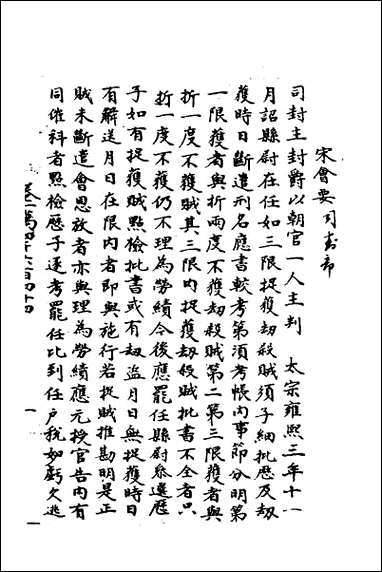 宋會要 司封部
司封主封爵以朝官一人主判 太宗雍熙三年十一
月詔縣尉在任如三限捉獲劫殺賊須子細批歷及劫
獲時日斷遣刑名應書較考第須考帳內事節分明第
一限獲者與折兩度不獲劫殺賊第二第三限獲者與
折一度不獲賊其三限內捉獲劫殺賊批書不全者只
折一度不獲仍不理為勞績今後應罷任縣尉參選歷
子如有捉獲賊點檢批書或有劫盜月日無捉獲時日
有解送月日在限內者即與施行若捉賊推勘明是正
賊未斷遣會恩放者亦與理為勞績應元授官告內有
同催科者點檢歷子逐考罷任比到任戶稅如虧欠逃
卷一萬四千六百四十四
一